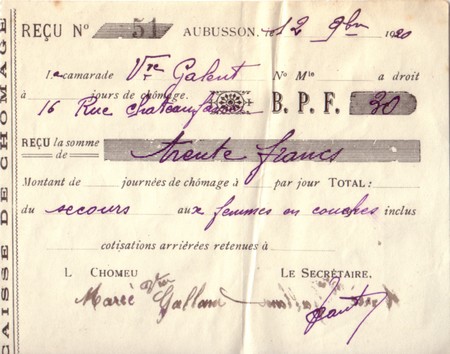 CAISSE DE CHOMAGE
REÇU Nº 51 AUBUSSON, le 12 9bre 1920
Le camarade Vve Galent Nº Mle a droit
à jours de chômage. B. P. F. 30
16 Rue
REÇU la somme de trente francs
Montant de journées de chômage à par jour TOTAL:
du secours aux femmes en couches inclus
cotisations arriérées retenues à
L CHOMEU LE SECRÉTAIRE.
Galland